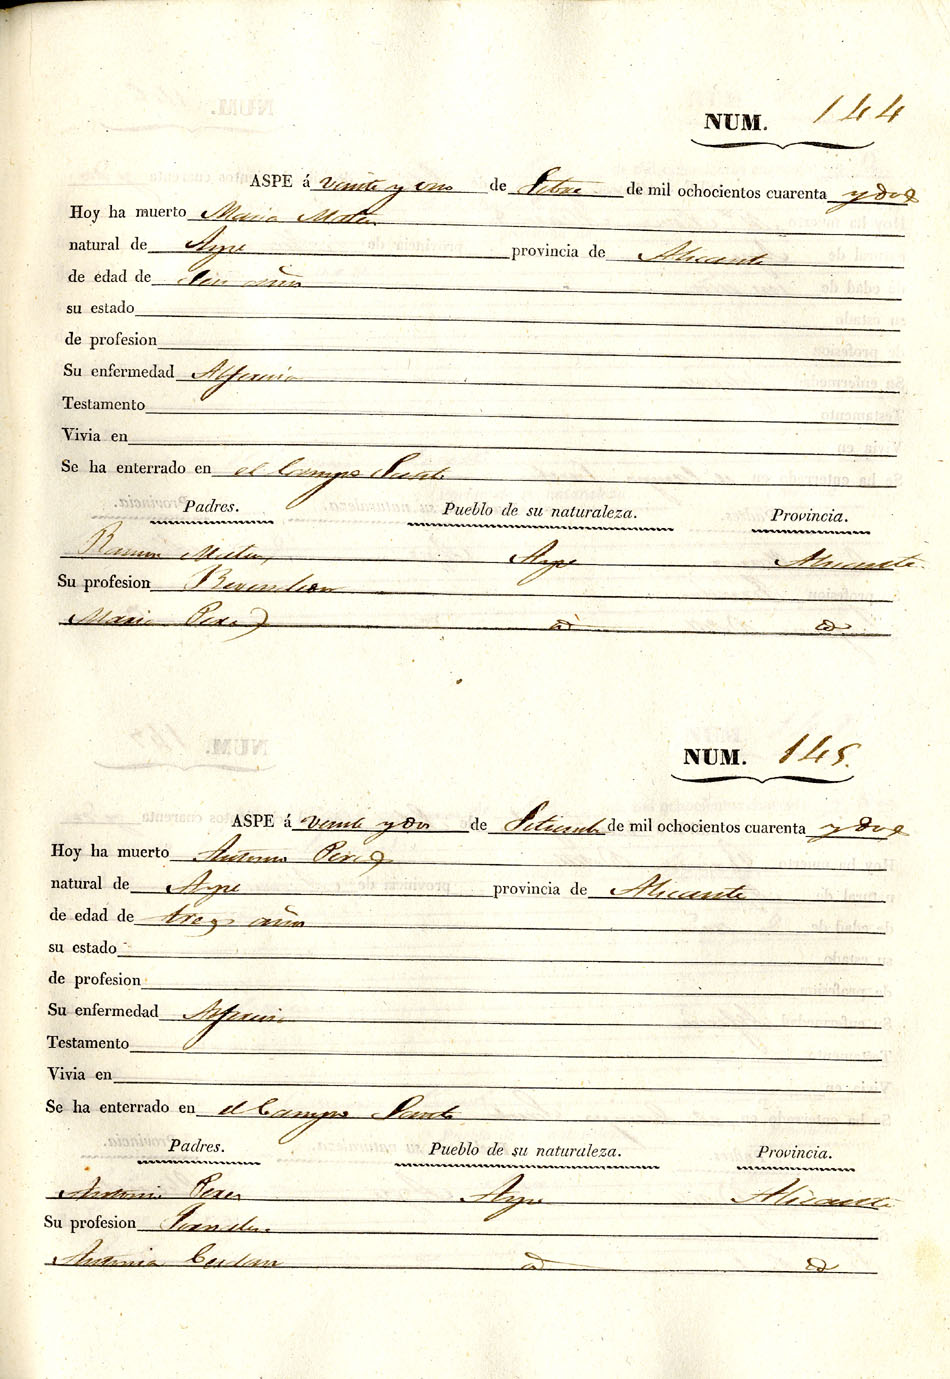 NUM. 144
ASPE á veinte y uno de Setbre de mil ochocientos cuarenta y dos
Hoy ha muerto Maria
natural de Aspe provincia de Alicante
de edad de años
su estado
de profesion
Su enfermedad Alferecia
Testamento
Vivia en
Se ha enterrado en el Campo Santo
Padres. Pueblo de su naturaleza. Provincia.
Ramon Aspe Alicante
Su profesion
Maria Perez id id
NUM. 145.
ASPE á veinte y dos de Setiembre de mil ochocientos cuarenta y dos
Hoy ha muerto Antonio Perez
natural de Aspe provincia de Alicante
de edad de tres años
su estado
de profesion
Su enfermedad Alferecia
Testamento
Vivia en
Se ha enterrado en el Campo Santo
Padres. Pueblo de su naturaleza. Provincia.
Antonio Perez Aspe Alicante
Su profesion
Antonia Cerdan id id